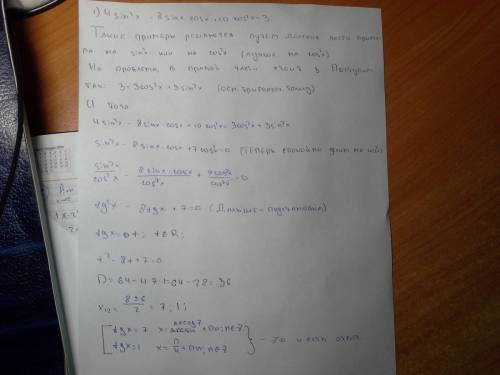 1) 4 sin²x - 8 sinx cosx + 10 cos²x = 3
Такие примеры решаются путем деления
на sin²x или на cos²x (лучше на cos²x)
Но проблема, в правой части стоит 3
так: 3 = 3cos²x + 3sin²x (осн. тригоном. тожд)
И тогда
4 sin²x - 8 sinx cosx + 10 cos²x = 3cos²x + 3 sin²x
sin²x - 8 sinx · cosx + 7 cos²x = 0 (Теперь спокойно делим на cos²x)
sin²x/cos²x - 8 sinx · cosx/cos²x + 7cos²x/cos²x = 0
tg²x - 8tgx + 7 = 0 (Дальше - подстановка)
tgx = t; t∈R;
t² - 8t + 7 = 0
D = 64 - 4·7·1 = 64 - 28 = 36
x₁₂ = 8±6/2 = 7; 1;
tgx = 7 x = arctg7 + πn; n∈Z
tgx = 1 x = π/4 + πn; n∈Z - Это и есть ответ